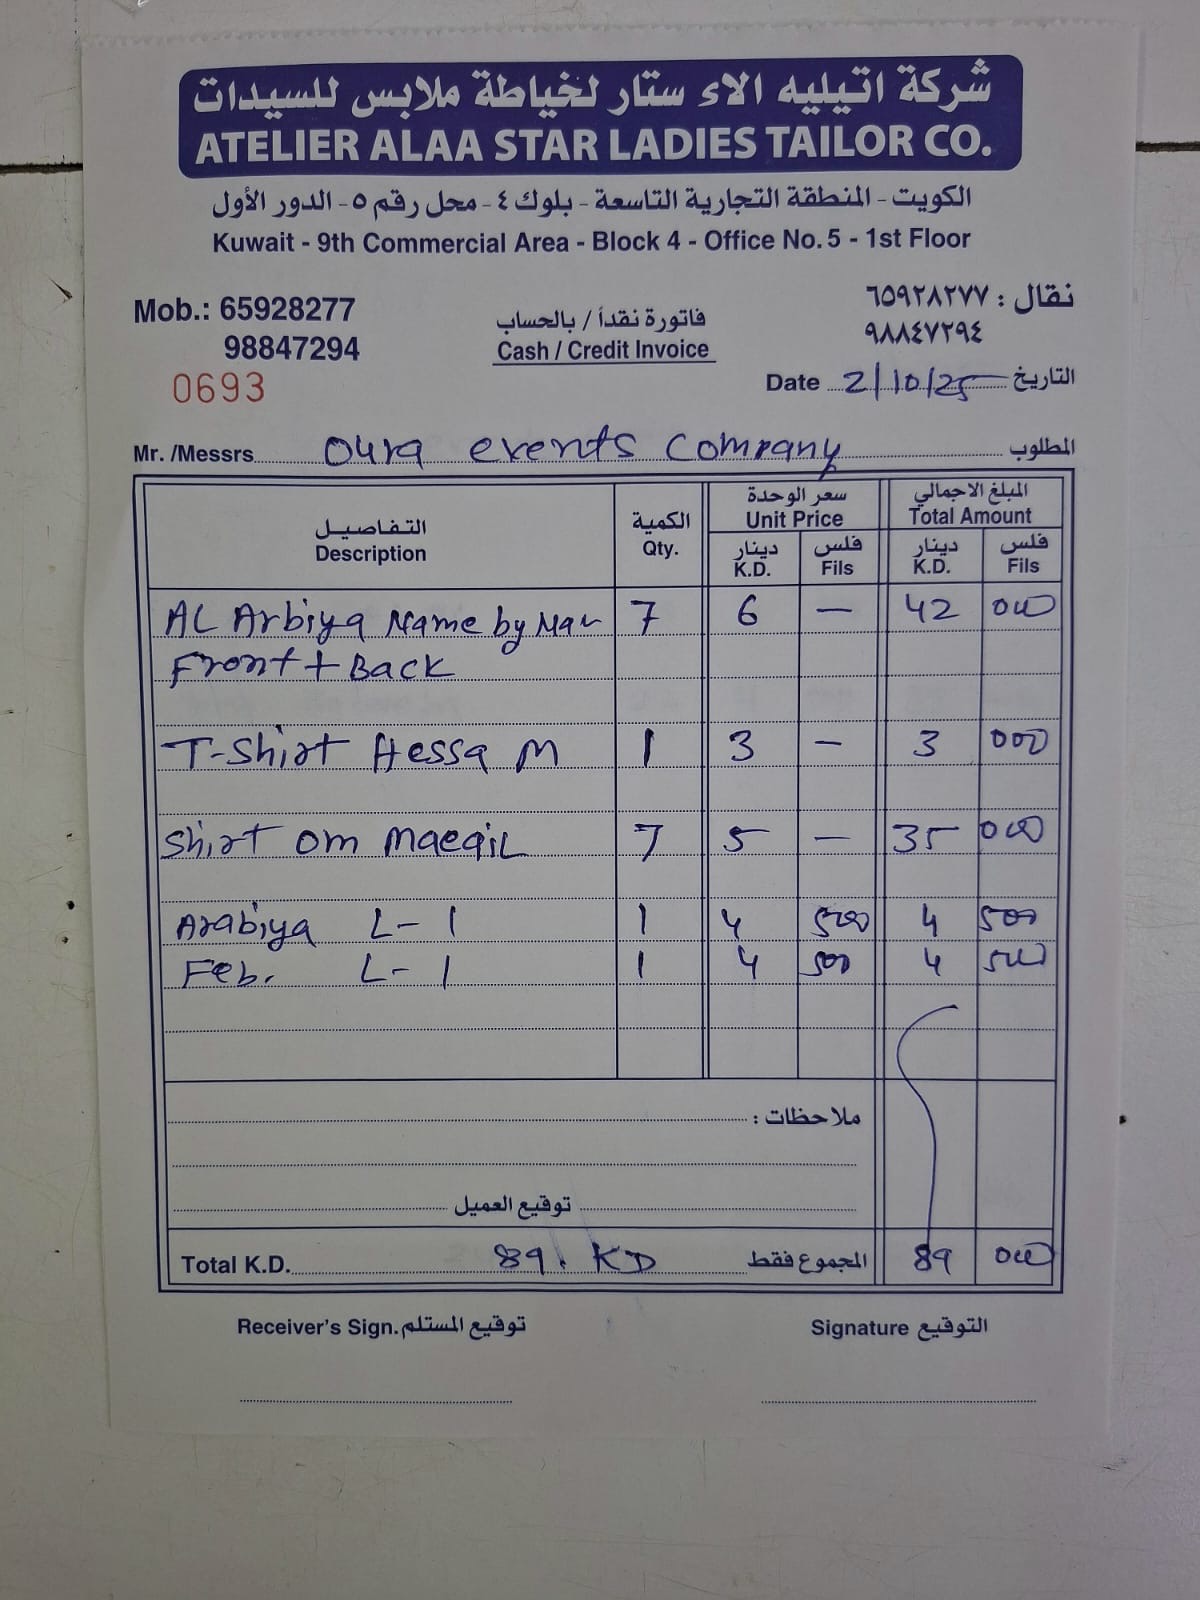 شركة اتيليه الاء ستار لخياطة ملابس للسيدات
ATELIER ALAA STAR LADIES TAILOR CO.
الكويت - المنطقة التجارية التاسعة - بلوك ٤ - محل رقم ٥ - الدور الأول
Kuwait - 9th Commercial Area - Block 4 - Office No. 5 - 1st Floor
Mob.: 65928277 نقال : ٦٥٩٢٨٢٧٧
98847294 ٩٨٨٤٧٢٩٤
فاتورة نقداً / بالحساب
Cash / Credit Invoice
0693
Date 2/10/25 التاريخ
Mr. /Messrs. Oura events Company المطلوب
التفاصيل الكمية سعر الوحدة المبلغ الاجمالي
Description Qty. Unit Price Total Amount
دينار فلس دينار فلس
K.D. Fils K.D. Fils
AL Arbiya Name by 7 6 — 42 000
Front + Back
T-Shirt Hessa M 1 3 — 3 000
Shirt om maeqil 7 5 — 35 000
Arabiya L - 1 1 4 500 4 500
Feb. L - 1 1 4 500 4 500
ملاحظات :
توقيع العميل
Total K.D. 89. KD المجموع فقط 89 000
Receiver's Sign. توقيع المستلم Signature التوقيع